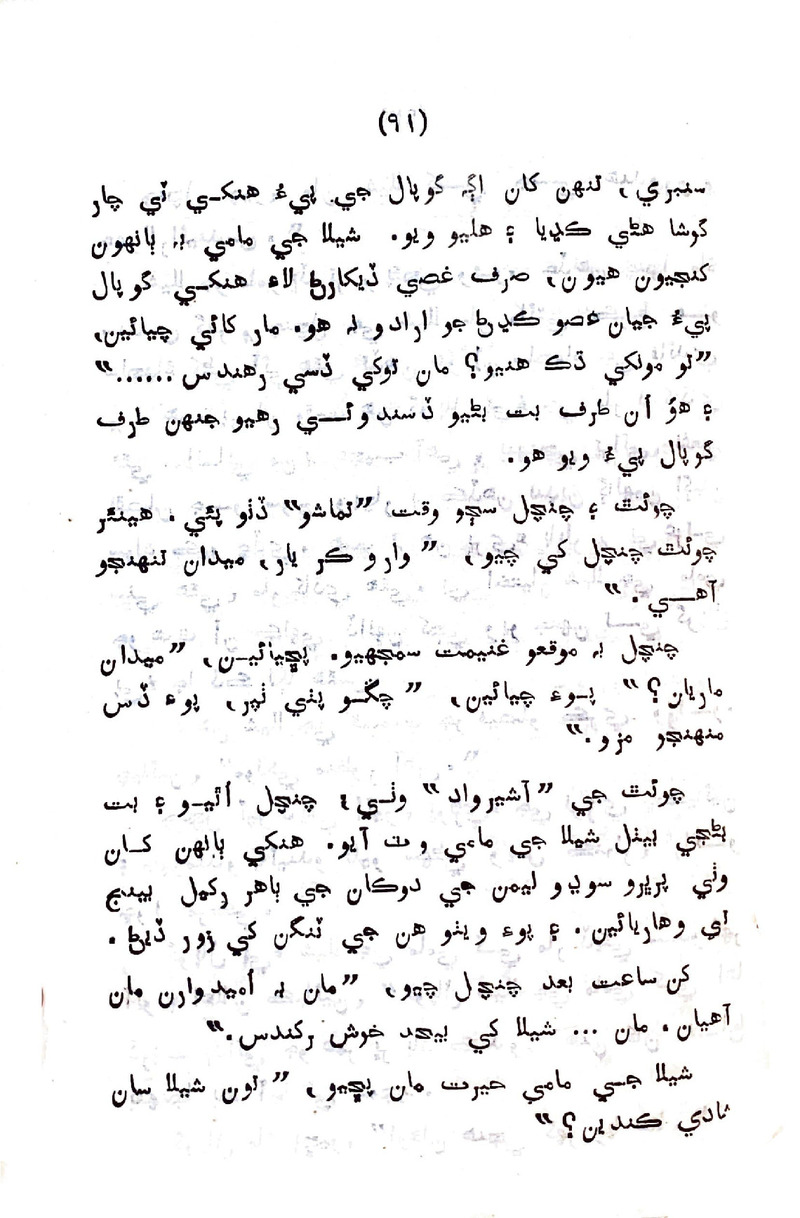 (٩١)
سنبري، تنهن کان اڳ گوپال جي پيءُ هنکي ٽي چار
گوشا هڻي ڪڍيا ۽ هليو ويو. شيلا جي مامي به ٻانهون
کنجيون هيون، صرف غصي ڏيکارڻ لاءِ هنکي گوپال
پيءُ جيان غصو ڪڍڻ جو ارادو نه هو. مار کائي چيائين،
”تو مونکي ڌڪ هنيو؟ مان توکي ڏسي رهندس......“
۽ هوُ اُن طرف بت بڻيو ڏسندو ئي رهيو جنهن طرف
گوپال پيءُ ويو هو.
چوئٿ ۽ چنچل سڄو وقت ”تماشو“ ڏٺو پئي. هينئر
چوئٿ چنچل کي چيو، ”وارو ڪر يار، ميدان تنهنجو
آهي.“
چنچل به موقعو غنيمت سمجهيو. پڇيائين، ”ميدان
ماريان؟“ پوءِ چيائين، ”چڱو پٺي ٺپر، پوءِ ڏس
منهنجو مزو.“
چوئٿ جي ”آشيرواد“ وٺي، چنچل اُٿيو ۽ بت
بڻجي بيٺل شيلا جي مامي وٽ آيو. هنکي ٻانهن کان
وٺي ڀرڀرو سوڍو ليمن جي دوڪان جي ٻاهر رکيل بينچ
تي وهاريائين. ۽ پوءِ ويٺو هن جي ٽنگن کي زور ڏيڻ.
کن ساعت بعد چنچل چيو، ”مان به اُميدوارن مان
آهيان. مان ... شيلا کي بيحد خوش رکندس.“
شيلا جي مامي حيرت مان پڇيو، ”تون شيلا سان
شادي ڪندين؟“